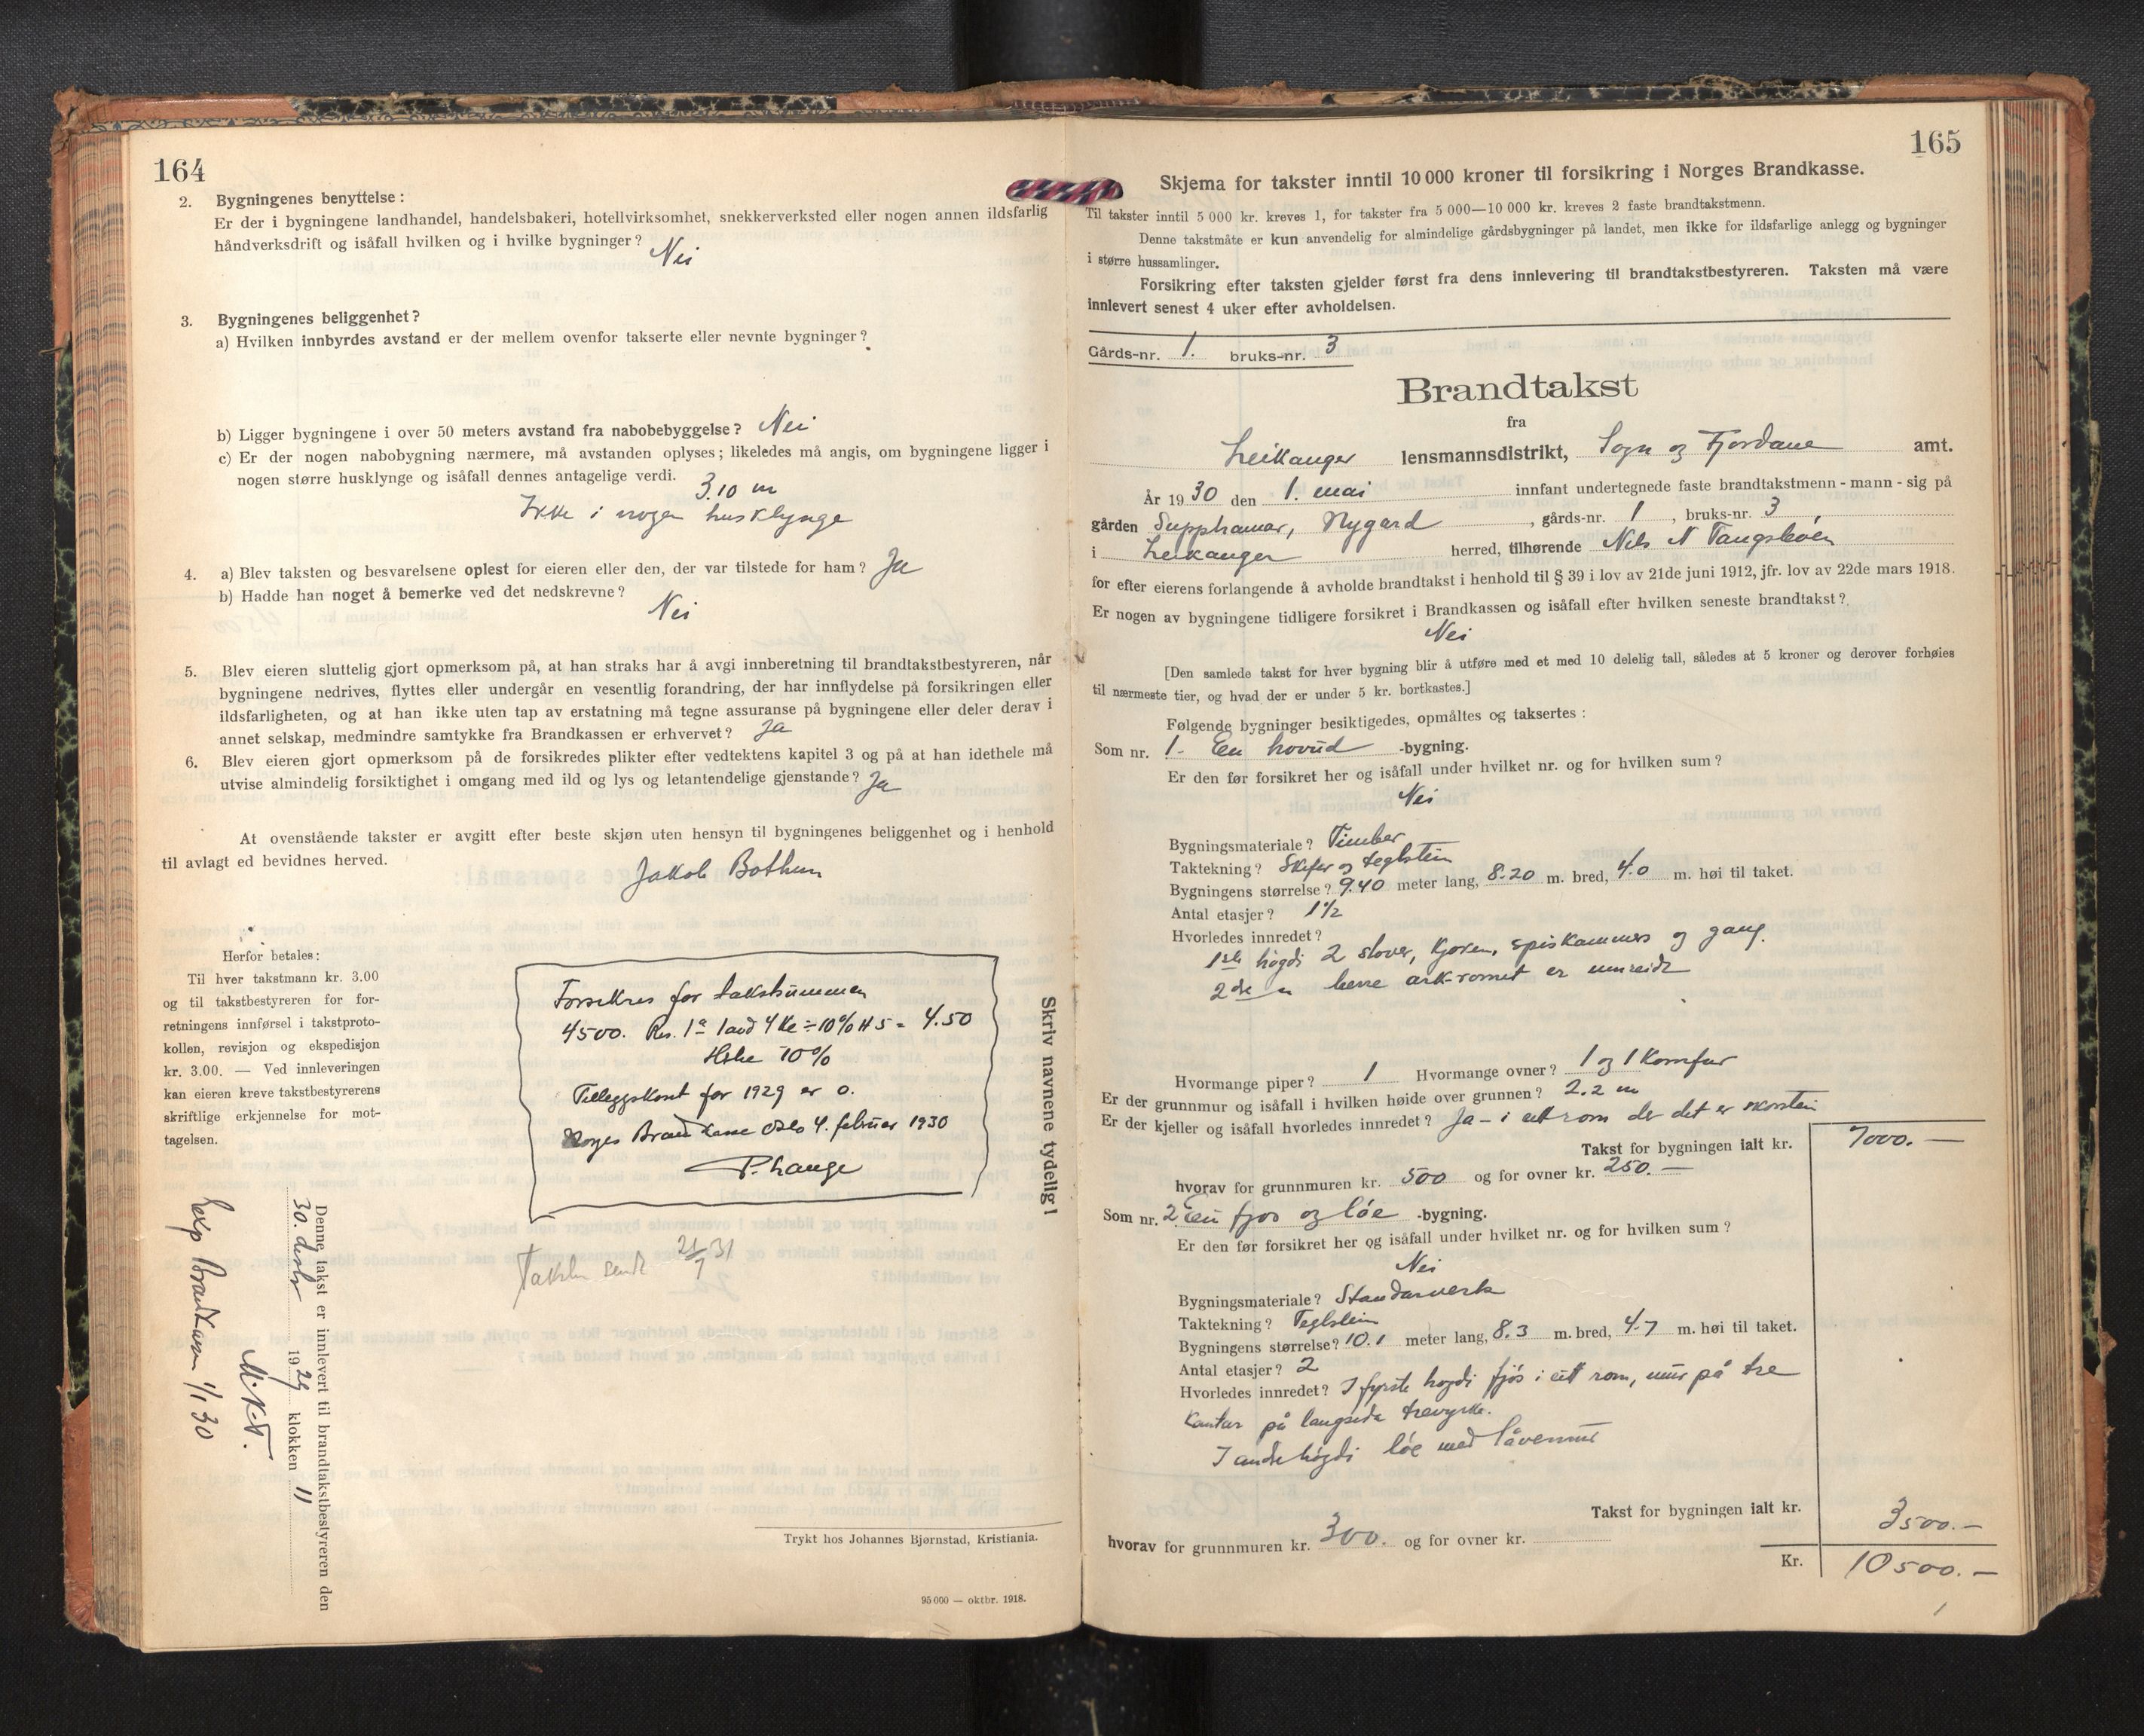 164
2. Bygningenes benyttelse:
Er der i bygningene landhandel, handelsbakeri, hotellvirksomhet, snekkerverksted eller nogen annen ildsfarlig
håndverksdrift og isåfall hvilken og i hvilke bygninger? Nei
3. Bygningenes beliggenhet?
a) Hvilken innbyrdes avstand er der mellem ovenfor takserte eller nevnte bygninger?
b) Ligger bygningene i over 50 meters avstand fra nabobebyggelse? Nei
c) Er der nogen nabobygning nærmere, må avstanden oplyses; likeledes må angis, om bygningene ligger i
nogen større husklynge og isåfall dennes antagelige verdi. 3.10 m
Ikke i nogen husklynge
4. a) Blev taksten og besvarelsene oplest for eieren eller den, der var tilstede for ham? Ja
b) Hadde han noget å bemerke ved det nedskrevne?
Nei
5. Blev eieren sluttelig gjort opmerksom på, at han straks har å avgi innberetning til brandtakstbestyreren, når
bygningene nedrives, flyttes eller undergår en vesentlig forandring, der har innflydelse på forsikringen eller
ildsfarligheten, og at han ikke uten tap av erstatning må tegne assuranse på bygningene eller deler derav i
annet selskap, medmindre samtykke fra Brandkassen er erhvervet? Ja
6. Blev eieren gjort opmerksom på de forsikredes plikter efter vedtektens kapitel 3 og på at han idethele må
utvise almindelig forsiktighet i omgang med ild og lys og letantendelige gjenstande? Ja
At ovenstående takster er avgitt efter beste skjøn uten hensyn til bygningenes beliggenhet og i henhold
til avlagt ed bevidnes herved.
Jakob Bothun
Herfor betales:
Til hver takstmann kr. 3.00
og til takstbestyreren for for-
retningens innførsel i takstproto-
kollen, revisjon og ekspedisjon
kr. 3.00. — Ved innleveringen
kan eieren kreve takstbestyrerens
skriftlige erkjennelse for mot-
tagelsen.
Forsikres for takstsummen
4500. 1ª land 4 ÷ 10% = 4.50
10%
Tilleggskont for 1929 er 0.
Norges Brandkasse Oslo 4. februar 1930
P. Lange
Taksten sendt 21/7 31
Skriv navnene tydelig!
Denne takst er innlevert til brandtakstbestyreren den
30. desbr 1929 klokken 11
M.K.S.
Brandkassen 1/1 30
Trykt hos Johannes Bjørnstad, Kristiania.
95 000 — oktbr. 1918.
165
Skjema for takster inntil 10 000 kroner til forsikring i Norges Brandkasse.
Til takster inntil 5 000 kr. kreves 1, for takster fra 5 000—10 000 kr. kreves 2 faste brandtakstmenn.
Denne takstmåte er kun anvendelig for almindelige gårdsbygninger på landet, men ikke for ildsfarlige anlegg og bygninger
i større hussamlinger.
Forsikring efter taksten gjelder først fra dens innlevering til brandtakstbestyreren. Taksten må være
innlevert senest 4 uker efter avholdelsen.
Gårds-nr. 1. bruks-nr. 3
Brandtakst
fra
Leikanger lensmannsdistrikt, Sogn og Fjordane amt.
År 1930 den 1. mai innfant undertegnede faste brandtakstmenn - mann - sig på
gården Supphamar, Nygard, gårds-nr. 1, bruks-nr. 3,
i Leikanger herred, tilhørende Nils N
for efter eierens forlangende å avholde brandtakst i henhold til § 39 i lov av 21de juni 1912, jfr. lov av 22de mars 1918.
Er nogen av bygningene tidligere forsikret i Brandkassen og isåfall efter hvilken seneste brandtakst?
Nei
[Den samlede takst for hver bygning blir å utføre med et med 10 delelig tall, således at 5 kroner og derover forhøies
til nærmeste tier, og hvad der er under 5 kr. bortkastes.]
Følgende bygninger besiktigedes, opmåltes og taksertes:
Som nr. 1. En hovud -bygning.
Er den før forsikret her og isåfall under hvilket nr. og for hvilken sum?
Nei
Bygningsmateriale? Timber
Taktekning? Skifer og teglstein
Bygningens størrelse? 9.40 meter lang, 8.20 m. bred, 4.0 m. høi til taket.
Antal etasjer? 1½
Hvorledes innredet?
1ste høgdi 2 stover, kjøken, spiskammers og gang.
2dre " berre ark-romet er innreidt
Hvormange piper? 1 Hvormange ovner? 1 og 1 Komfur
Er der grunnmur og isåfall i hvilken høide over grunnen? 2.2 m
Er der kjeller og isåfall hvorledes innredet? Ja - i eitt rom der det er skorstein
Takst for bygningen ialt kr. 7000. —
hvorav for grunnmuren kr. 500 og for ovner kr. 250. —
Som nr. 2 Ein fjos og løe -bygning.
Er den før forsikret her og isåfall under hvilket nr. og for hvilken sum?
Nei
Bygningsmateriale? Standarverk
Taktekning? Teglstein
Bygningens størrelse? 10.1 meter lang, 8.3 m. bred, 4.7 m. høi til taket.
Antal etasjer? 2
Hvorledes innredet? I fyrste høgdi fjøs i eitt rom, mur på tre
kantar på langsida trevyrke.
I andre høgdi løe med låvemur
Takst for bygningen ialt kr. 3500. —
hvorav for grunnmuren kr. 300. og for ovner kr.
Kr. 10500. —